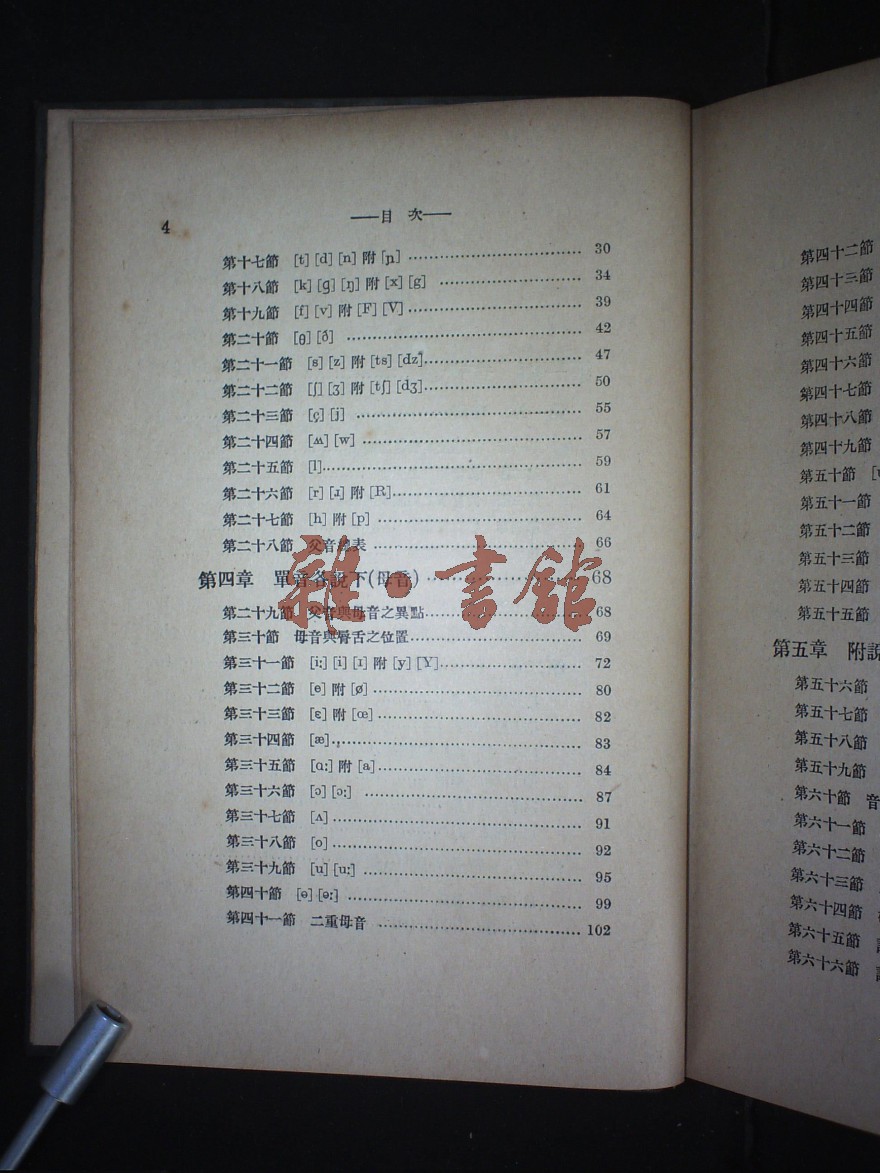 4
——目 次——
第十七節 [t] [d] [n] 附 [ɲ] 30
第十八節 [k] [g] [ŋ] 附 [x] [g] 34
第十九節 [f] [v] 附 [F] [V] 39
第二十節 [θ] [ð] 42
第二十一節 [s] [z] 附 [ts] [dz] 47
第二十二節 [ʃ] [ʒ] 附 [tʃ] [dʒ] 50
第二十三節 [ç] [j] 55
第二十四節 [ʍ] [w] 57
第二十五節 [l] 59
第二十六節 [r] [ɹ] 附 [R] 61
第二十七節 [h] 附 [p] 64
第二十八節 父音總表 66
第四章 單音各說下(母音) 68
第二十九節 父音與母音之異點 68
第三十節 母音與脣舌之位置 69
第三十一節 [i:] [i] [ɪ] 附 [y] [Y] 72
第三十二節 [e] 附 [ø] 80
第三十三節 [ɛ] 附 [œ] 82
第三十四節 [æ] 83
第三十五節 [ɑ:] 附 [a] 84
第三十六節 [ɔ] [ɔ:] 87
第三十七節 [ʌ] 91
第三十八節 [o] 92
第三十九節 [u] [u:] 95
第四十節 [ə] [ə:] 99
第四十一節 二重母音 102
雜·書館
第四十二節
第四十三節
第四十四節
第四十五節
第四十六節
第四十七節
第四十八節
第四十九節
第五十節
第五十一節
第五十二節
第五十三節
第五十四節
第五十五節
第五章 附說
第五十六節
第五十七節
第五十八節
第五十九節
第六十節 音
第六十一節
第六十二節
第六十三節
第六十四節
第六十五節
第六十六節